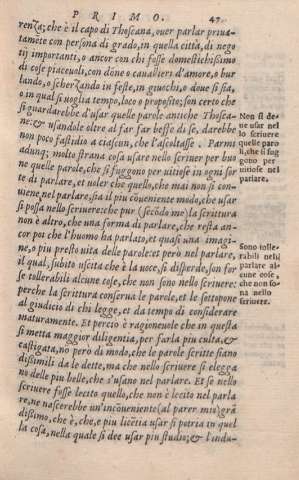 PRIMO. 47
renza; che è il capo di Thoscana, ouer parlar priua-
tamẽte con persona di grado, in quella città, di nego
tij importanti, o ancor con chi fosse domestichissimo
di cose piaceuoli, con dõne o caualieri d'amore, o bur
lando, o scherzando in feste, in giuochi, o doue si sia,
o in qual si uoglia tempo, loco o proposito; son certo che
si guardarebbe d'usar quelle parole antiche Thosca-
ne: & usandole oltre al far far beffe di se, darebbe
non poco fastidio a ciascun che l'ascoltasse. Parmi
adunq; molto strana cosa usare nello scriuer per buo
ne quelle parole, che si fuggono per uitiose in ogni sor
te di parlare, et uoler che quello, che mai non si con-
uiene nel parlare, sia il piu cõueniente modo, che usar
si possa nello scriuere: che pur (secõdo me) la scrittura
non è altro, che una forma di parlare, che resta an-
cor poi che l'huomo ha parlato, et quasi una imagi-
ne, o piu presto uita delle parole: et però nel parlare,
il qual, subito uscita che è la uoce, si disperde, son for
se tollerabili alcune cose, che non sono nello scriuere:
perche la scrittura conserua le parole, et le sottopone
al giudicio di chi legge, et da tempo di considerare
maturamente. Et perciò è ragioneuole che in questa
si metta maggior diligentia, per farla piu culta, &
castigata, nò però di modo, che le parole scritte siano
dissimili da le dette, ma che nello scriuere si elegga
no delle piu belle, che s'usano nel parlare. Et se nello
scriuere fosse lecito quello, che non è lecito nel parla
re, ne nascerebbe un'incõueniẽte (al parer mio) grã
dissimo, che è, che, e piu licẽtia usar si potria in quel
la cosa, nella quale si dee usar piu studio; & l'indu-
Non si de-
ue usar nel
lo scriuere
quelle paro
le, che si fug
gono per
uitiose nel
parlare.
Sono tolle-
rabili nel
parlare al-
cune cose,
che non so-
no nello
scriuere.